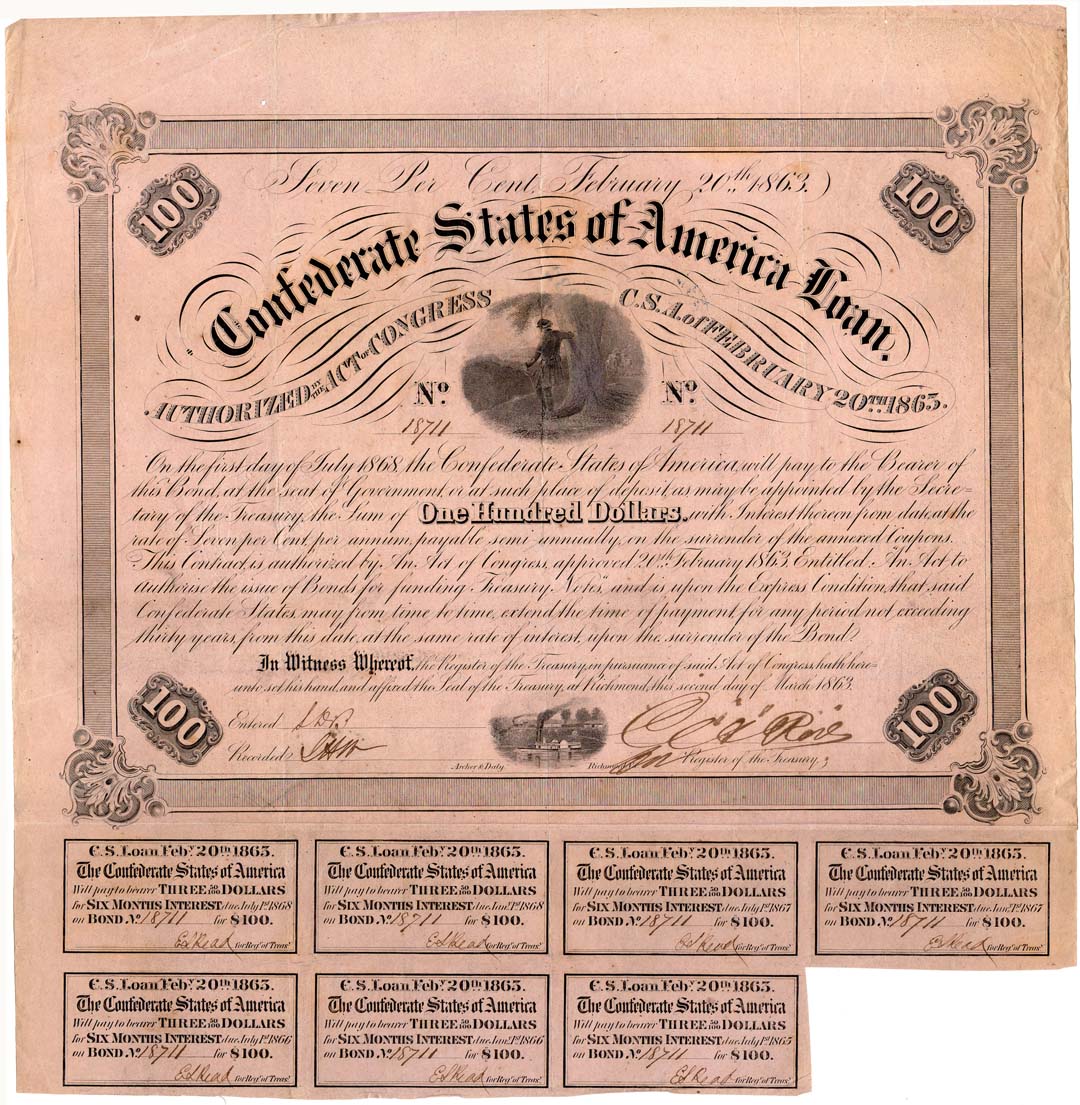 100
100
Seven Per Cent, February 20th 1863.)
Confederate States of America Loan.
AUTHORIZED BY THE ACT OF CONGRESS
C.S.A. of FEBRUARY 20TH 1863.
No.
No.
18711
18711
On the first day of July 1868, the Confederate States of America, will pay to the Bearer of
this Bond, at the seat of Government, or at such place of deposit, as may be appointed by the Secre=
tary of the Treasury, the Sum of One Hundred Dollars. with Interest thereon from date, at the
rate of Seven per Cent, per annum, payable semi-annually, on the surrender of the annexed Coupons.
This Contract is authorized by An Act of Congress, approved 20th February 1863, Entitled "An Act to
authorise the issue of Bonds for funding Treasury Notes", and is upon the Express Condition, that said
Confederate States, may from time to time, extend the time of payment, for any period not exceeding
thirty years, from this date, at the same rate of interest, upon the surrender of the Bond.
In Witness Whereof, the Register of the Treasury, in pursuance of said Act of Congress, hath here=
unto set his hand, and affixed the Seal of the Treasury, at Richmond, this second day of March 1863.
100
100
Entered
Recorded
Archer & Daly,
Richmond
Register of the Treasury.
C.S. Loan Feby. 20th 1863.
The Confederate States of America
Will pay to bearer THREE 50/100 DOLLARS
for SIX MONTHS INTEREST due July 1st 1868
on BOND No. 18711 for $100.
E S Read for Regr. of Treasy.
C.S. Loan Feby. 20th 1863.
The Confederate States of America
Will pay to bearer THREE 50/100 DOLLARS
for SIX MONTHS INTEREST due Jany. 1st 1868
on BOND No. 18711 for $100.
E S Read for Regr. of Treasy.
C.S. Loan Feby. 20th 1863.
The Confederate States of America
Will pay to bearer THREE 50/100 DOLLARS
for SIX MONTHS INTEREST due July 1st 1867
on BOND No. 18711 for $100.
E S Read for Regr. of Treasy.
C.S. Loan Feby. 20th 1863.
The Confederate States of America
Will pay to bearer THREE 50/100 DOLLARS
for SIX MONTHS INTEREST due Jany. 1st 1867
on BOND No. 18711 for $100.
E S Read for Regr. of Treasy.
C.S. Loan Feby. 20th 1863.
The Confederate States of America
Will pay to bearer THREE 50/100 DOLLARS
for SIX MONTHS INTEREST due July 1st 1866
on BOND No. 18711 for $100.
E S Read for Regr. of Treasy.
C.S. Loan Feby. 20th 1863.
The Confederate States of America
Will pay to bearer THREE 50/100 DOLLARS
for SIX MONTHS INTEREST due Jany. 1st 1866
on BOND No. 18711 for $100.
E S Read for Regr. of Treasy.
C.S. Loan Feby. 20th 1863.
The Confederate States of America
Will pay to bearer THREE 50/100 DOLLARS
for SIX MONTHS INTEREST due July 1st 1865
on BOND No. 18711 for $100.
E S Read for Regr. of Treasy.